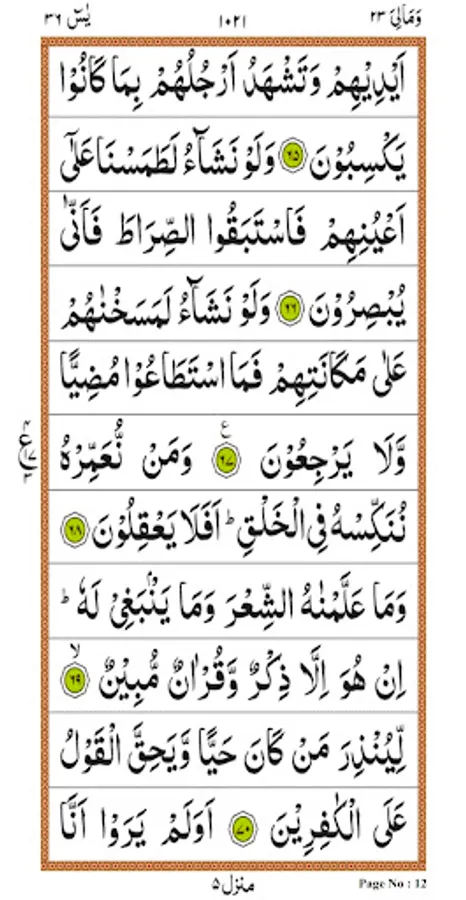 وَمَالِیَ ۲۳ ۱۰۲۱ یٰسٓ ۳۶
اَیْدِیْهِمْ وَتَشْهَدُ اَرْجُلُهُمْ بِمَا كَانُوْا
یَكْسِبُوْنَ ۶۵ وَلَوْ نَشَآءُ لَطَمَسْنَا عَلٰۤی
اَعْیُنِهِمْ فَاسْتَبَقُوا الصِّرَاطَ فَاَنّٰی
یُبْصِرُوْنَ ۶۶ وَلَوْ نَشَآءُ لَمَسَخْنٰهُمْ
عَلٰی مَكَانَتِهِمْ فَمَا اسْتَطَاعُوْا مُضِیًّا
وَّلَا یَرْجِعُوْنَ ۶۷ ع وَمَنْ نُّعَمِّرْهُ
نُنَكِّسْهُ فِی الْخَلْقِ ؕ اَفَلَا یَعْقِلُوْنَ ۶۸
وَمَا عَلَّمْنٰهُ الشِّعْرَ وَمَا یَنْۢبَغِیْ لَهٗ ؕ
اِنْ هُوَ اِلَّا ذِكْرٌ وَّقُرْاٰنٌ مُّبِیْنٌ ۶۹ ۙ
لِّیُنْذِرَ مَنْ كَانَ حَیًّا وَّیَحِقَّ الْقَوْلُ
عَلَی الْكٰفِرِیْنَ ۷۰ اَوَلَمْ یَرَوْا اَنَّا
منزل ۵ Page No : 12